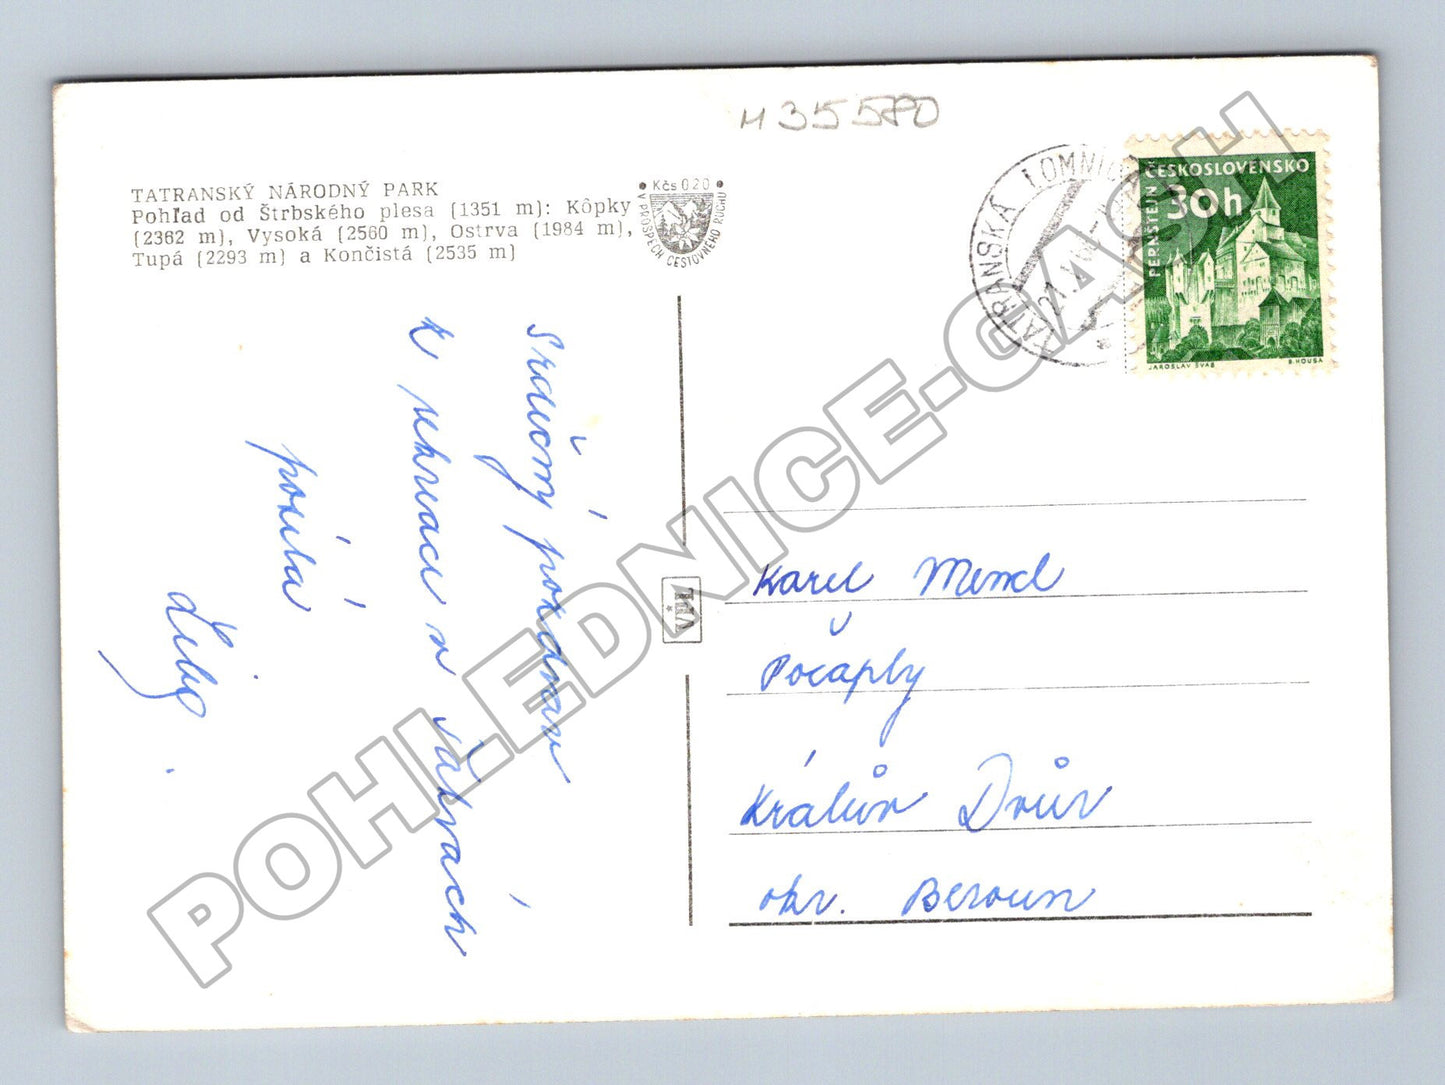 435580
TATRANSKÝ NÁRODNÝ PARK
Pohľad od Štrbského plesa (1351 m): Kôpky
(2362 m), Vysoká (2560 m), Ostrva (1984 m),
Tupá (2293 m) a Končistá (2535 m)
Kčs 0,20
V PROSPECH CESTOVNÉHO RUCHU
TATRANSKÁ LOMNICA
21.
ČESKOSLOVENSKO
30h
PERNŠTEJN
JAROSLAV ŠVÁB
B. HOUSA
Srdečný pozdrav
z rekreace v Tatrách
posílá
VTL
Karel Mencl
Počaply
Králův Dvůr
okr. Beroun
POHLEDNICE-CASH